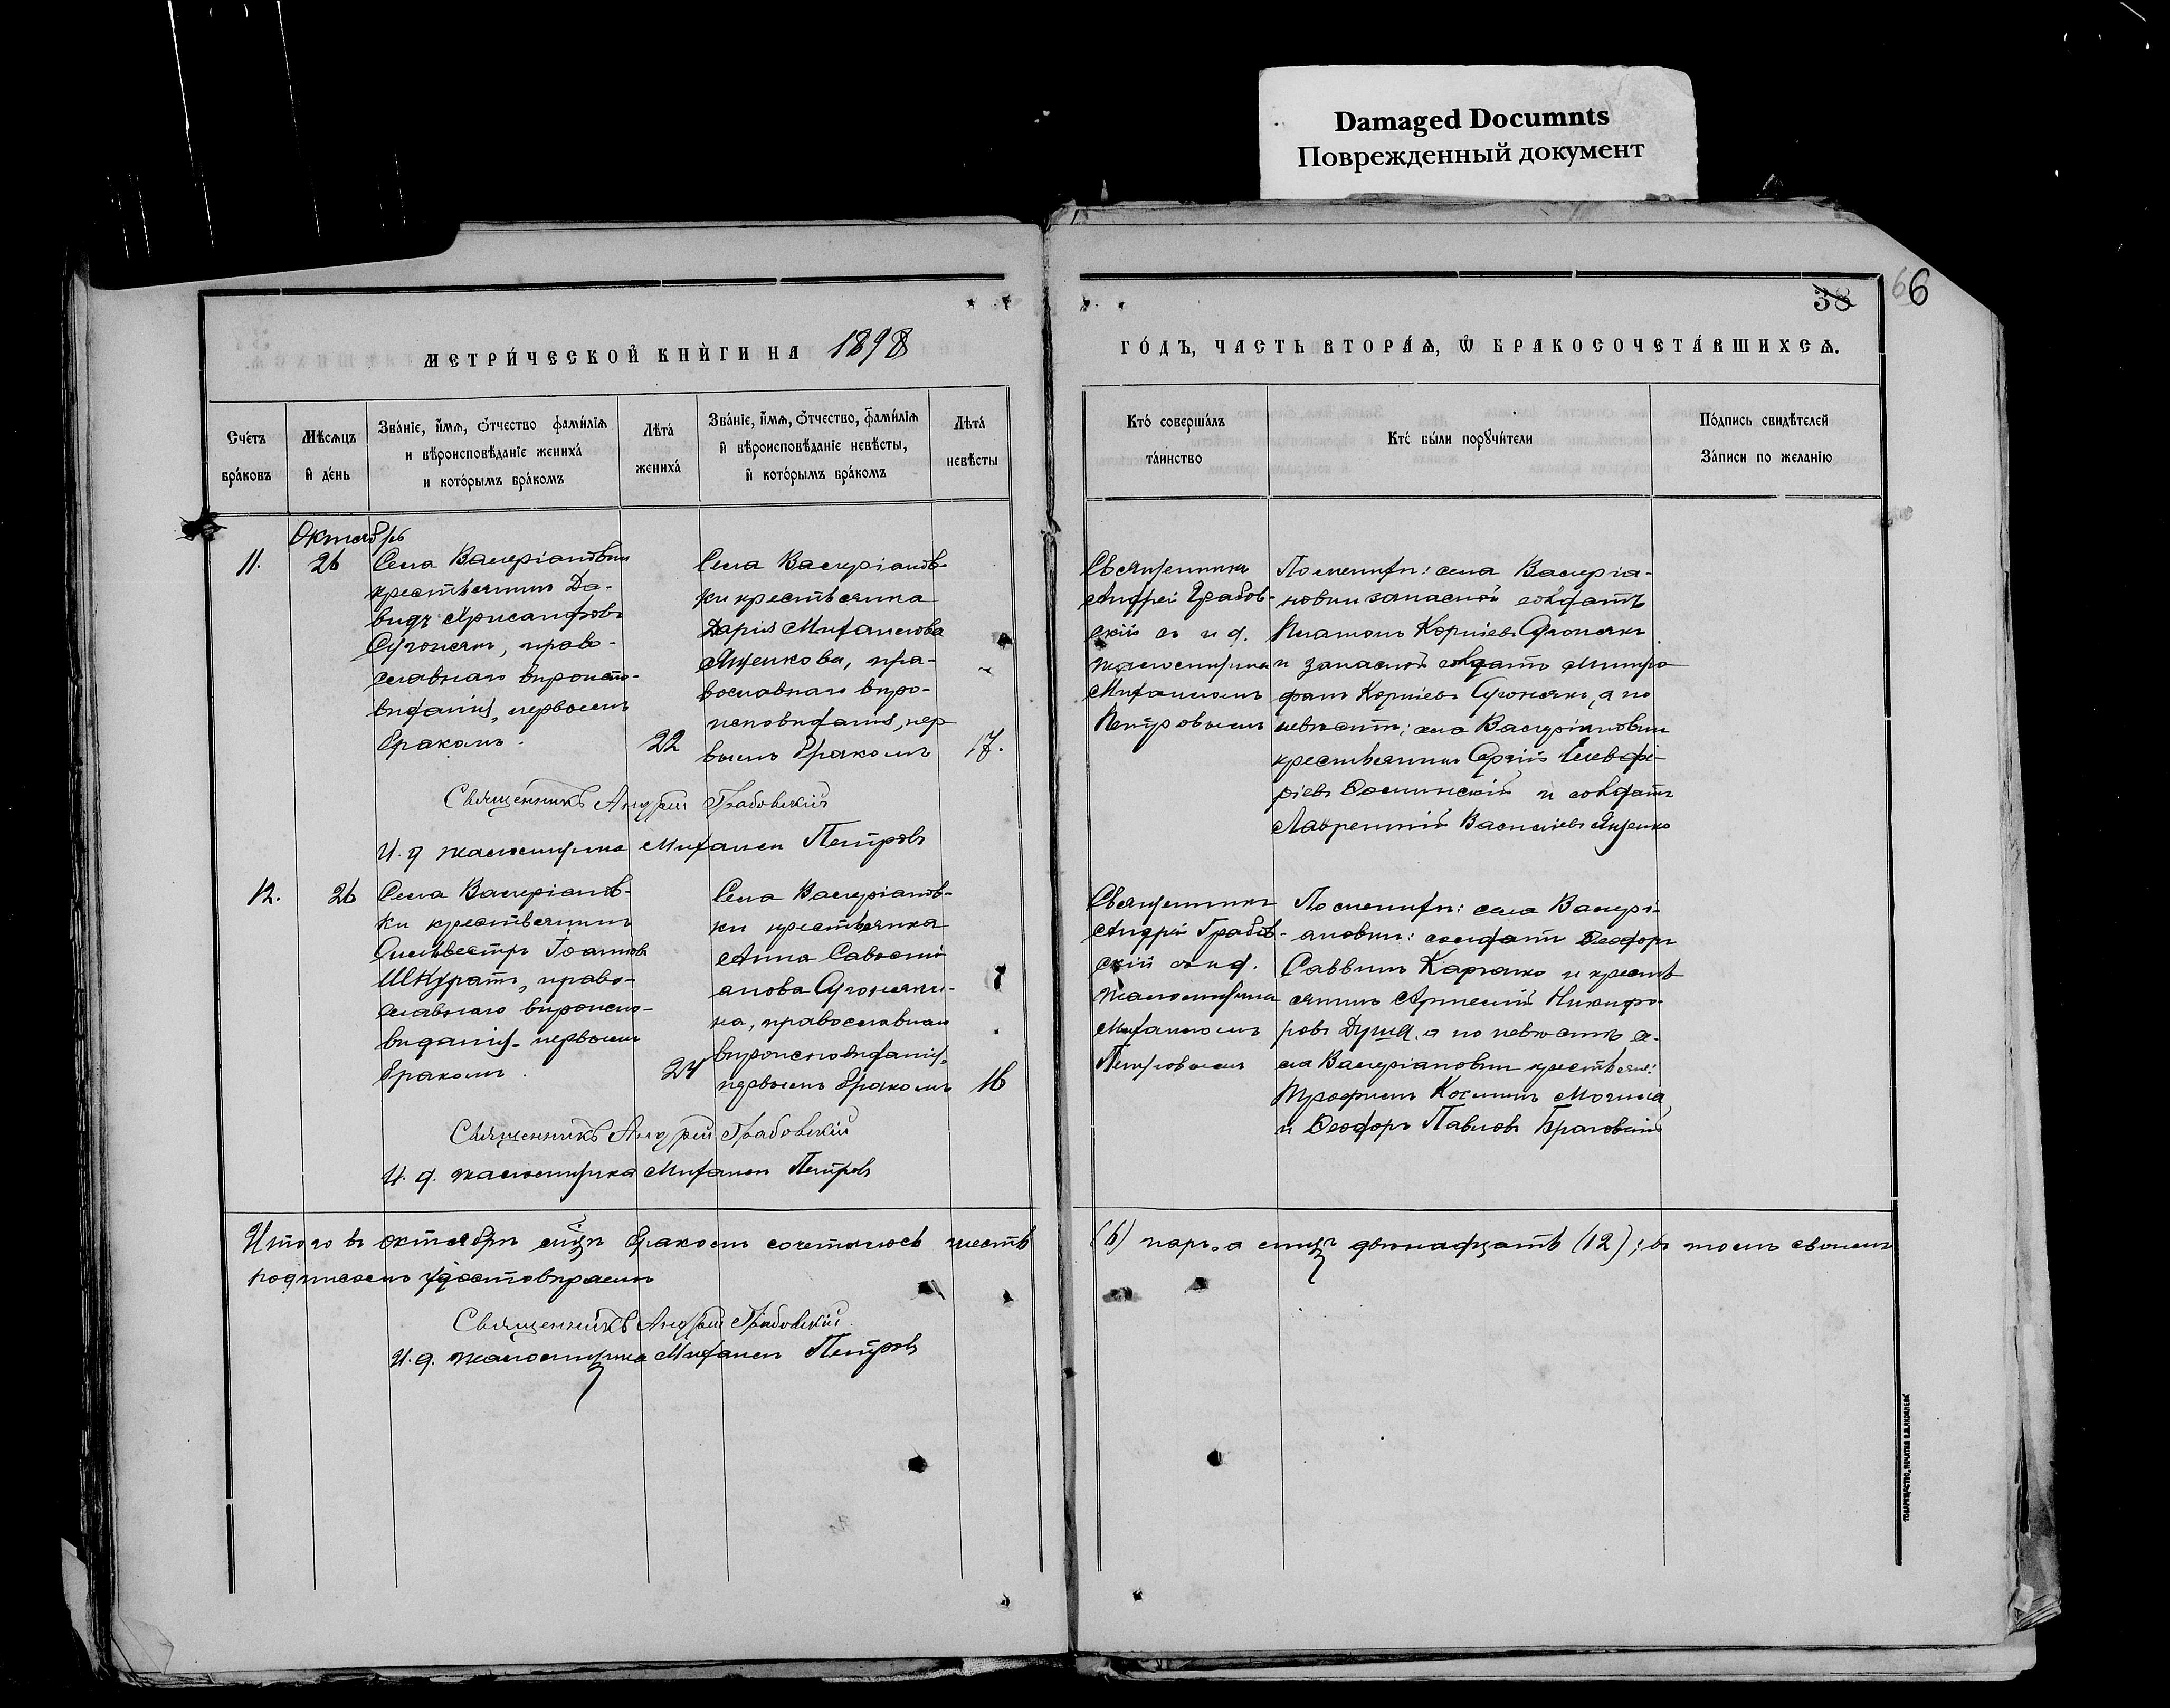 Damaged Documnts
Поврежденный документ
38
66
МЕТРИ́ЧЕСКОЙ КНИ́ГИ НА 1898
ГО́ДЪ, ЧАСТЬ ВТОРА́Ѧ, Ѿ БРАКОСОЧЕТА́ВШИХСѦ.
Сче́тъ
бра́ковъ
Мѣ́сѧцъ
и҆ де́нь
Зва́нїе, и҆́мѧ, ѻ҆́тчество фами́лїѧ
и вѣроисповѣ́данїе жениха́
и кото́рымъ бра́комъ
Лѣта́
жениха́
Зва́нїе, и҆́мѧ, ѻ҆́тчество, фами́лїѧ
и҆ вѣроисповѣ́данїе невѣ́сты,
и҆ кото́рымъ бра́комъ
Лѣта́
невѣ́сты
Кто́ соверша́лъ
та́инство
Кто́ бы́ли порꙋчи́тели
По́дпись свидѣ́телей
За́писи по жела́нїю
Октябрь
11.
26
Села Валеріановки
крестьянинъ Да-
видъ Хрисанфовъ
Сугонякъ, право-
славнаго вѣроиспо-
вѣданія, первымъ
бракомъ.
22
Села Валеріанов-
ки крестьянка
Дарія Михаилова
Яценкова, пра-
вославнаго вѣро-
исповѣданія, пер-
вымъ бракомъ
17.
Священникъ
Андрей Грабов-
скій съ и д.
псаломщика
Михаиломъ
Петровымъ
По женихѣ: села Валеріа-
новки запасной солдатъ
Платонъ Корніевъ Сугонякъ
и запасной солдатъ Митро-
фанъ Корніевъ Сугонякъ, а по
невѣстѣ: села Валеріановки
крестьянинъ Сергій Елевфе-
ріевъ и солдатъ
Лаврентій Васильевъ Яценко
Священникъ Андрей Грабовскій
И. д. псаломщика Михаилъ Петровъ
12.
26
Села Валеріанов-
ки крестьянинъ
Сильвестръ Іоанновъ
Шкуратъ, право-
славнаго вѣроиспо-
вѣданія, первымъ
бракомъ.
24
Села Валеріанов-
ки крестьянка
Анна Савасті-
анова Сугоняки-
на, православнаго
вѣроисповѣданія,
первымъ бракомъ
16
Священникъ
Андрей Грабов-
скій съ и д.
псаломщика
Михаиломъ
Петровымъ
По женихѣ: села Валері-
ановки: солдатъ Ѳеодоръ
Саввинъ и кресть-
янинъ Никифо-
ровъ а по невѣстѣ се-
ла Валеріановки крестьяне:
Трофимъ Козьминъ Могила
и Ѳеодоръ Павловъ
Священникъ Андрей Грабовскій
И. д. псаломщика Михаилъ Петровъ
Итого въ октябрѣ мѣсцѣ бракомъ сочеталось шесть (6) паръ, а двѣнадцать (12); въ томъ своимъ
подписомъ удостовѣряемъ
Священникъ Андрей Грабовскій.
И. д. псаломщика Михаилъ Петровъ